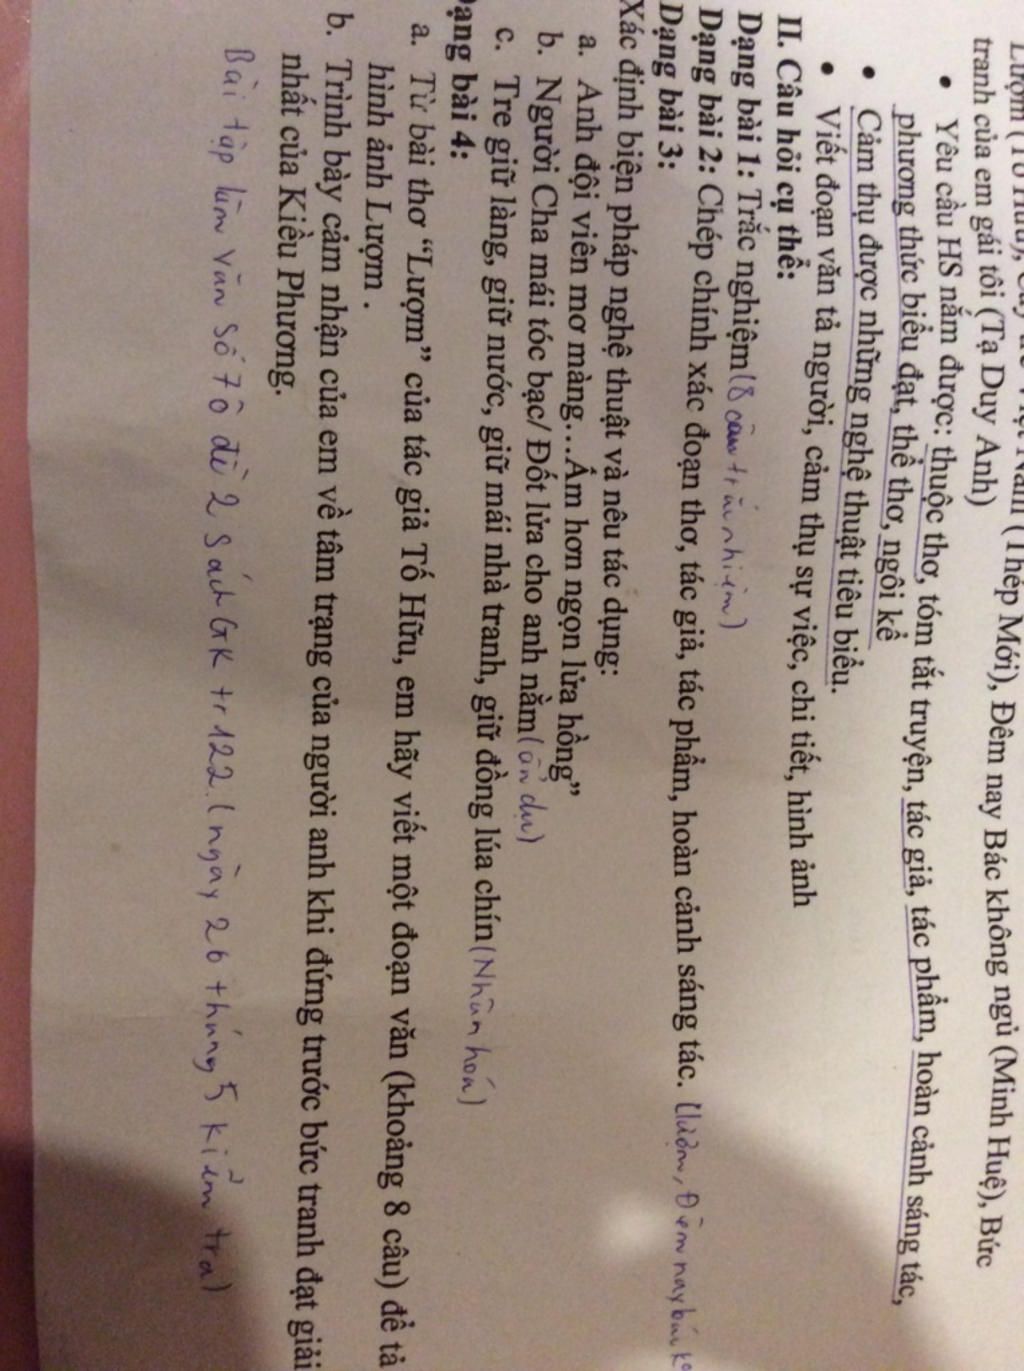 Lượm (Tố Hữu), Cây tre Việt Nam (Thép Mới), Đêm nay Bác không ngủ (Minh Huệ), Bức
tranh của em gái tôi (Tạ Duy Anh)
• Yêu cầu HS nắm được: thuộc thơ, tóm tắt truyện, tác giả, tác phẩm, hoàn cảnh sáng tác,
phương thức biểu đạt, thể thơ, ngôi kể
• Cảm thụ được những nghệ thuật tiêu biểu.
• Viết đoạn văn tả người, cảm thụ sự việc, chi tiết, hình ảnh
II. Câu hỏi cụ thể:
Dạng bài 1: Trắc nghiệm (8 câu trắc nhiệm)
Dạng bài 2: Chép chính xác đoạn thơ, tác giả, tác phẩm, hoàn cảnh sáng tác. (lượm, Đêm nay bác k°
Dạng bài 3:
Xác định biện pháp nghệ thuật và nêu tác dụng:
a. Anh đội viên mơ màng...Ấm hơn ngọn lửa hồng”
b. Người Cha mái tóc bạc/ Đốt lửa cho anh nằm (ẩn dụ)
c. Tre giữ làng, giữ nước, giữ mái nhà tranh, giữ đồng lúa chín (Nhân hoá)
Dạng bài 4:
a. Từ bài thơ “Lượm” của tác giả Tố Hữu, em hãy viết một đoạn văn (khoảng 8 câu) để tả
hình ảnh Lượm .
b. Trình bày cảm nhận của em về tâm trạng của người anh khi đứng trước bức tranh đạt giải
nhất của Kiều Phương.
Bài tập làm văn số 7 ô đề 2 sách GK tr 122. (ngày 26 tháng 5 kiểm tra)